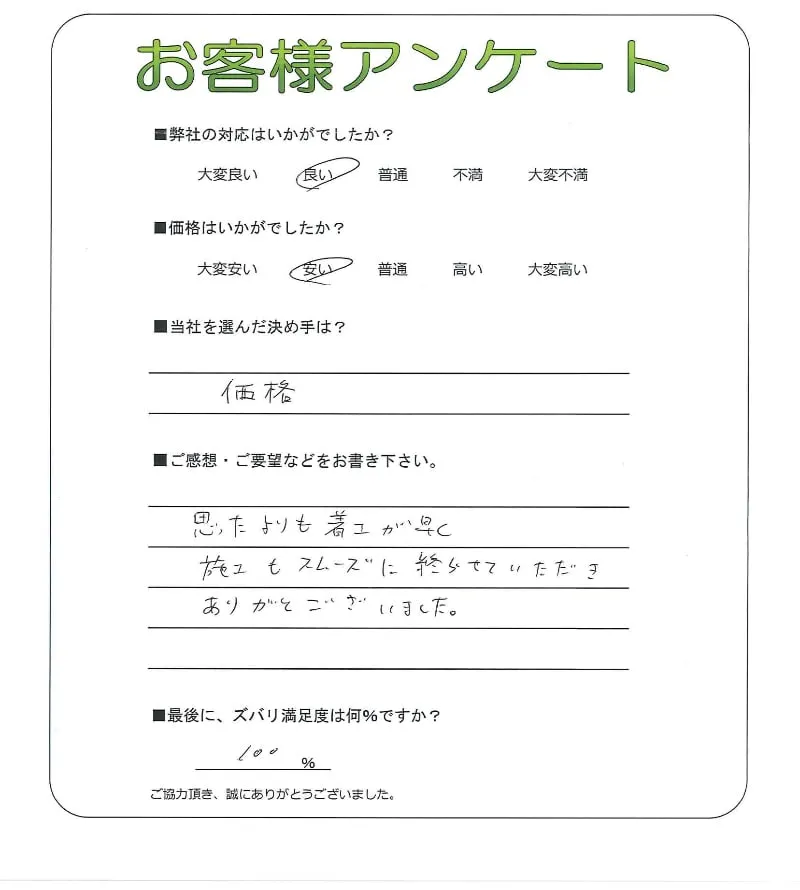 お客様アンケート
■弊社の対応はいかがでしたか？
大変良い 良い 普通 不満 大変不満
■価格はいかがでしたか？
大変安い 安い 普通 高い 大変高い
■当社を選んだ決め手は？
価格
■ご感想・ご要望などをお書き下さい。
思ったよりも着工が早く
施工もスムーズに終らせていただき
ありがとございました。
■最後に、ズバリ満足度は何％ですか？
100 ％
ご協力頂き、誠にありがとうございました。